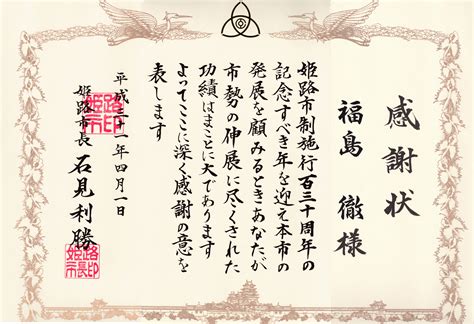 感謝状
福島 徹様
姫路市制施行百三十周年の
記念すべき年を迎え本市の
発展を顧みるときあなたが
市勢の伸展に尽くされた
功績はまことに大であります
よってここに深く感謝の意を
表します
平成三十一年四月一日
姫路市長 石見利勝